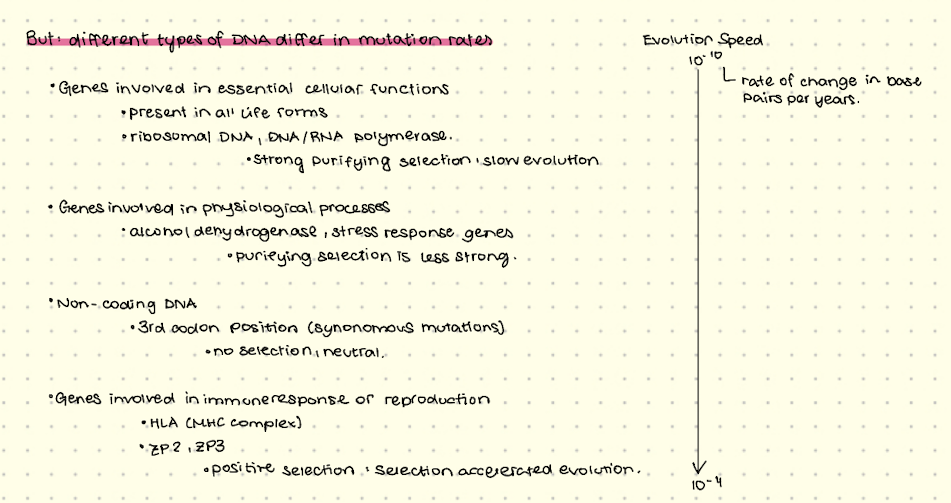 But: different types of DNA differ in mutation rates
Evolution Speed
10^-10
rate of change in base
pairs per years.
• Genes involved in essential cellular functions
• present in all life forms
• ribosomal DNA, DNA/RNA polymerase.
• strong purifying selection, slow evolution
• Genes involved in physiological processes
• alcohol dehydrogenase, stress response genes
• purifying selection is less strong.
• Non-coding DNA
• 3rd codon position (synonomous mutations)
• no selection, neutral.
• Genes involved in immune response or reproduction
• HLA (MHC complex)
• ZP2, ZP3
• positive selection : selection accelerated evolution.
10^-4